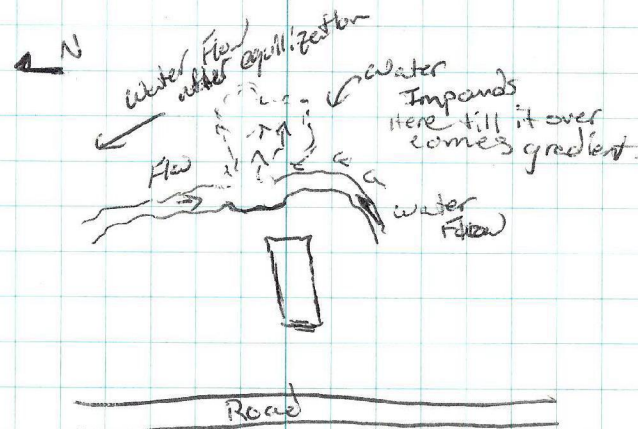 N
Water Flow
after equilization
Water
Impounds
Here till it over
comes gradient.
Flow
Water
Flow
Road